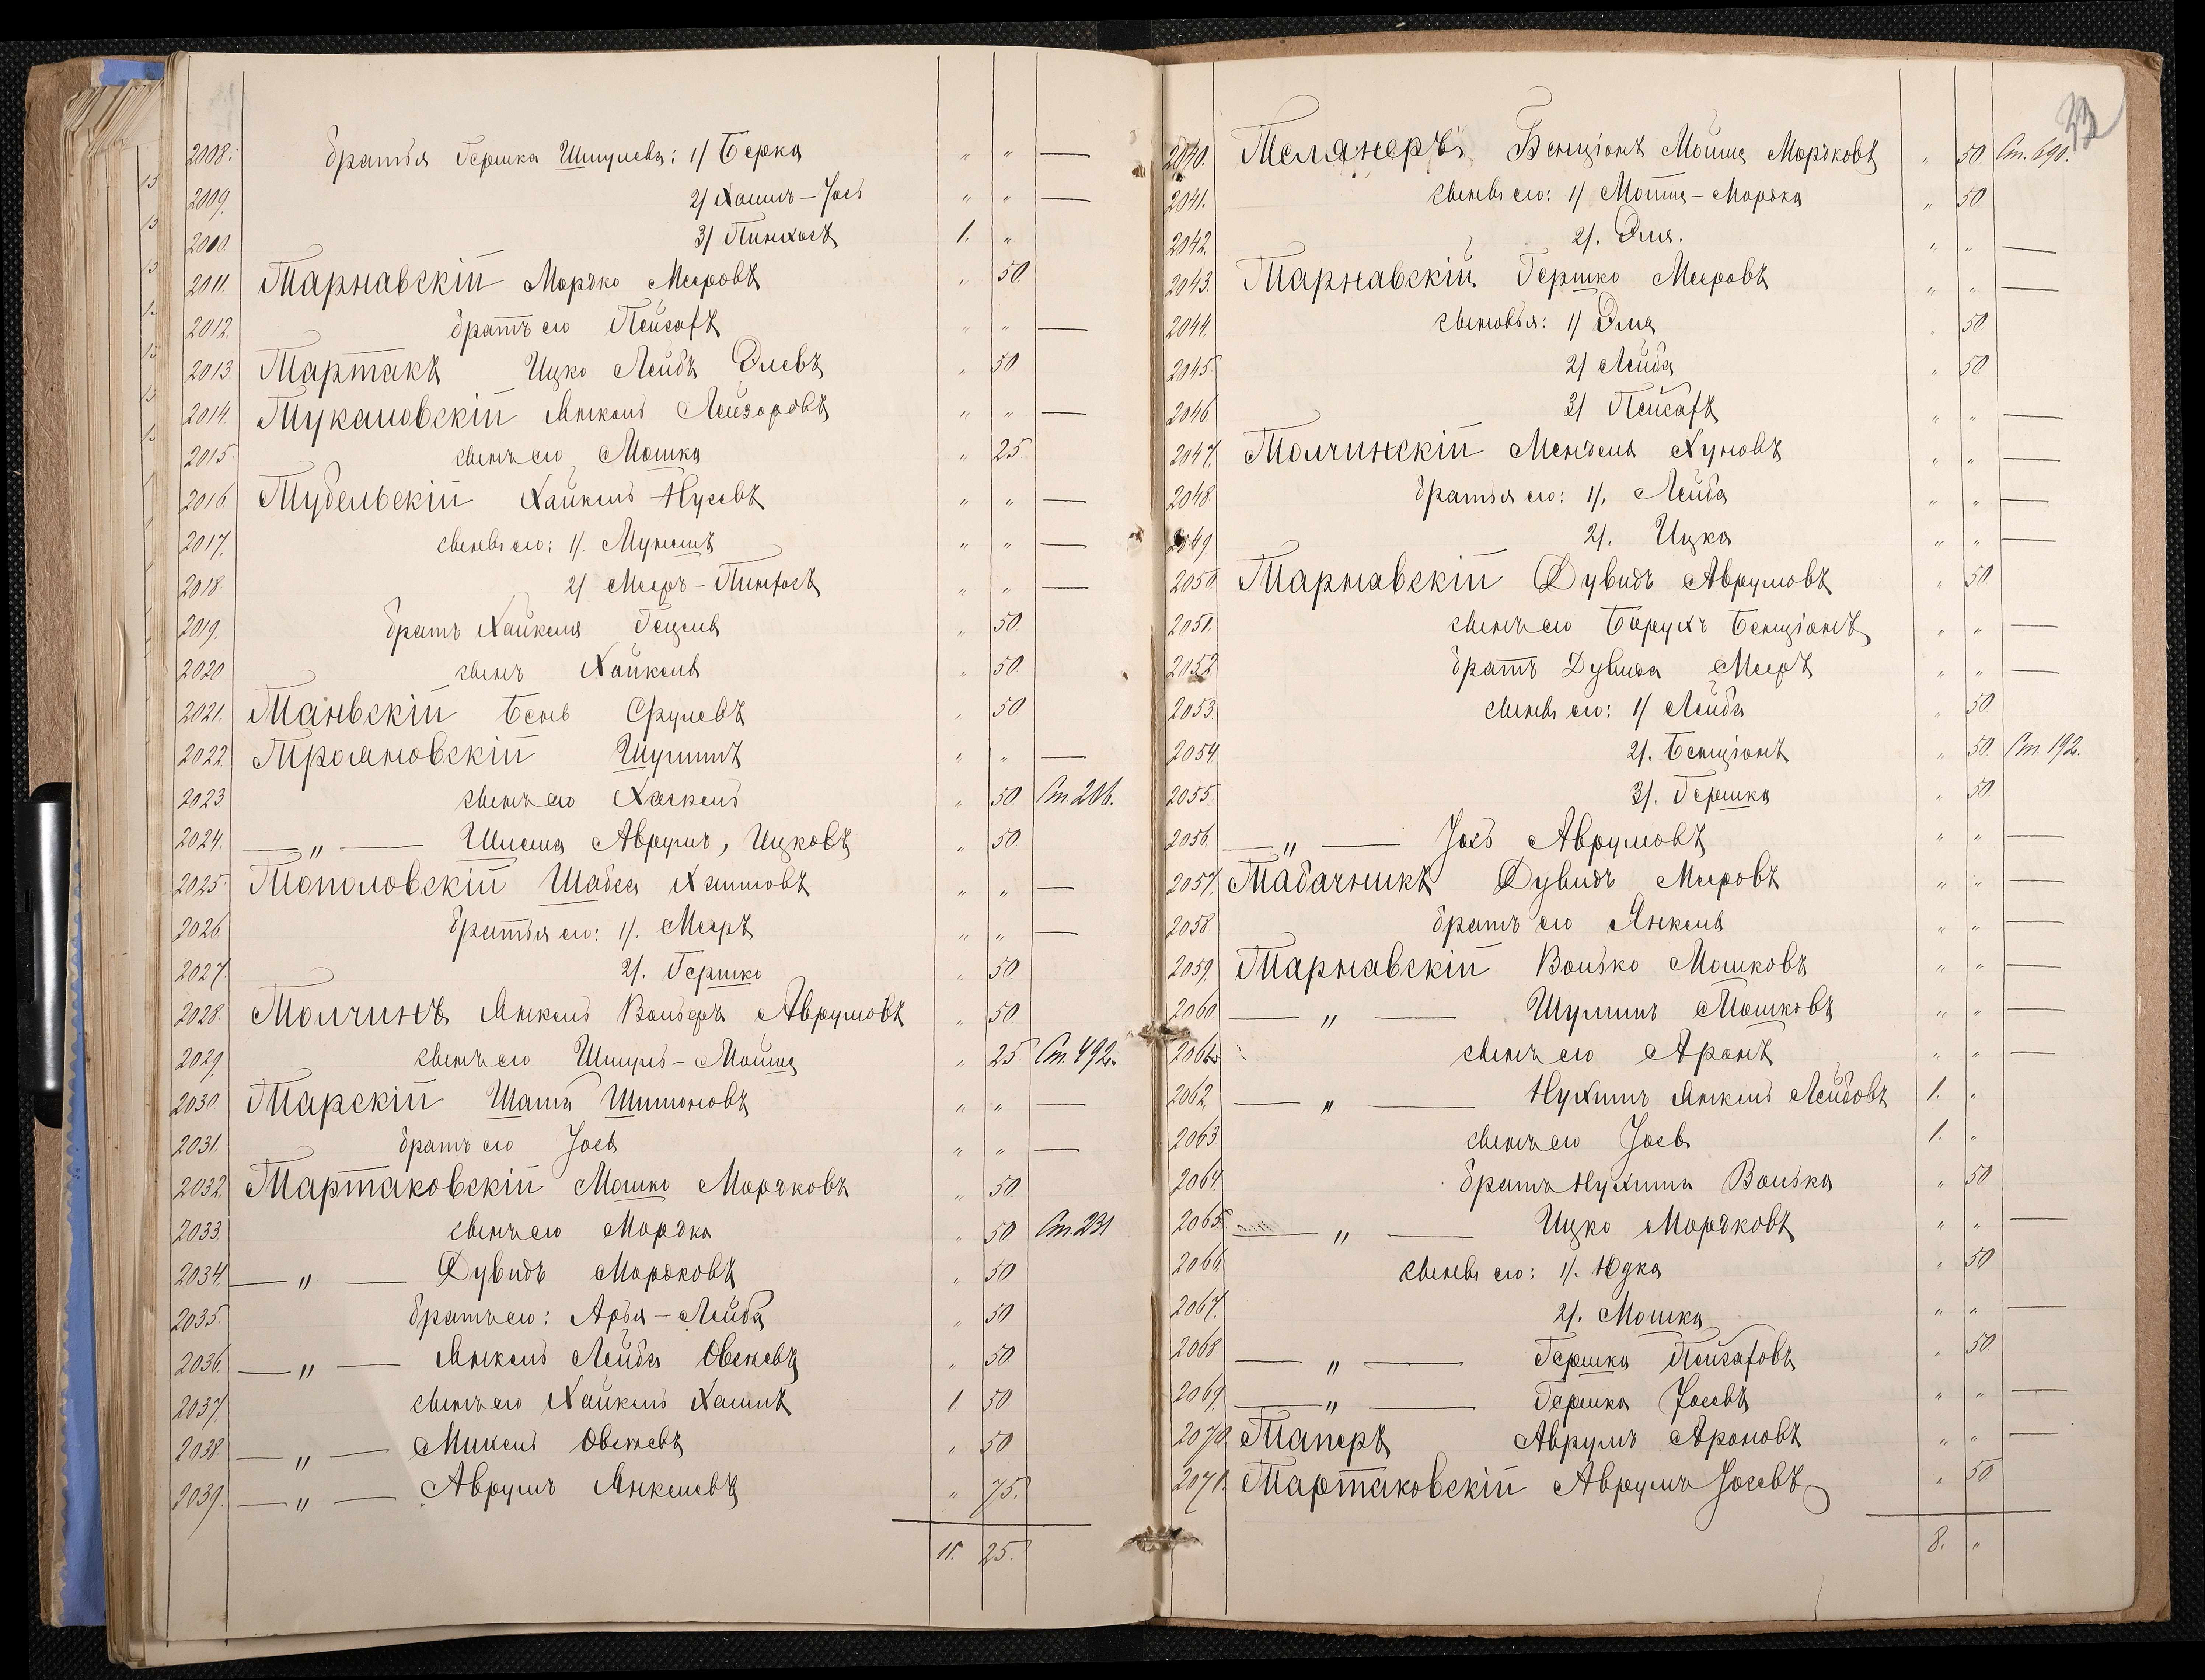 2008. братья Гершка Шмулева: 1/ Берка " " —
2009. 2/ Хаимъ-Іось " " —
2010. 3/ Пинхосъ 1. "
2011. Тарнавскій Мордко Мееровъ " 50.
2012. братъ его Пейсахъ " " —
2013. Тартакъ Ицко Лейбъ Элевъ " 50
2014. Тукаловскій Янкель Лейзоровъ " " —
2015. сынъ его Мошка " 25.
2016. Тубельскій Хайкель Нусевъ " " —
2017. сыновья его: 1/. " " —
2018. 2/ Мееръ-Пинхосъ " " —
2019. братъ Хайкеля Гецель " 50.
2020. сынъ Хайкель " 50
2021. Таньскій Бень Срулевъ " 50.
2022. Трояновскій Шулимъ " " —
2023 сынъ его Хаскель " 50. Ст. 206.
2024. — " — Шлема Аврумъ, Ицковъ " 50.
2025. Тополовскій Шабса Хаимовъ " " —
2026. братья его: 1/. Мееръ " " —
2027. 2/. Гершко " 50.
2028. Толчинъ Янкель Вольфъ Аврумовъ " 50
2029. сынъ его Шмуль-Мойше " 25 Ст. 492.
2030. Тарскій Шама Шимоновъ " " —
2031. братъ его Іось " " —
2032. Тартаковскій Мошко Мордковъ " 50
2033. сынъ его Мордка " 50 Ст. 231
2034. — " — Дувидъ Мордковъ " 50
2035. братъ его: Арья-Лейба " 50
2036. — " — Янкель Лейба Овсеевъ " 50
2037. сынъ его Хайкель Хаимъ 1. 50.
2038. — " — Микель Овсеевъ " 50
2039. — " — Аврумъ Янкелевъ " 75.
11. 25.
33
2040. Телянеръ Бенціонъ Мойше Мордковъ " 50. Ст. 690.
2041. сыновья его: 1/ Мотте-Мордка " 50
2042. 2/. Эля. " " —
2043. Тарнавскій Гершко Мееровъ " " —
2044. сыновья: 1/ Эля " 50
2045 2/ Лейба " 50.
2046 3/ Пейсахъ " " —
2047. Толчинскій Мендель Хуновъ " " —
2048 братья его: 1/. Лейба " " —
2049 2/. Ицка " " —
2050 Тарнавскій Дувидъ Аврумовъ " 50
2051. сынъ его Борухъ Бенціонъ " " —
2052 братъ Дувида Мееръ " " —
2053. сыновья его: 1/ Лейба " 50
2054. 2/. Бенціонъ " 50 Ст. 192.
2055. 3/. Гершка " 50.
2056. — " — Іось Аврумовъ " " —
2057. Табачникъ Дувидъ Мееровъ " " —
2058 братъ его Янкель " " —
2059. Тарнавскій Волько Мошковъ " " —
2060 — " — Шулимъ Мошковъ " " —
2061. сынъ его Аронъ " " —
2062 — " — Нухимъ Янкель Лейбовъ 1. "
2063 сынъ его Іось 1. "
2064. братъ Нухима Волька " 50
2065. — " — Ицко Мордковъ " " —
2066 сыновья его: 1/. Юдка " 50
2067. 2/. Мошка " " —
2068 — " — Гершка Пейсаховъ " 50.
2069. — " — Гершка Іосевъ " " —
2070. Таперъ Аврумъ Ароновъ " " —
2071. Тартаковскій Аврумъ Іосевъ " 50
8. "